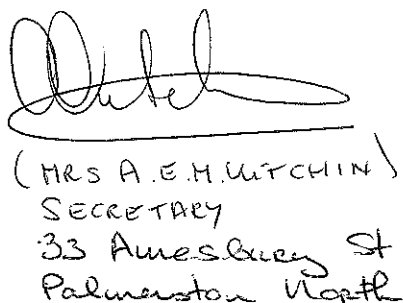 (MRS A.E.M.
SECRETARY
33 Amesbury St
Palmerston North